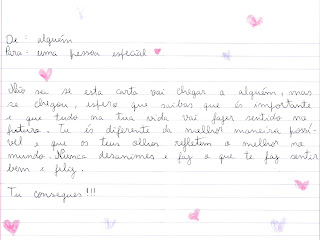 De: alguém
Para: uma pessoa especial
Não sei se esta carta vai chegar a alguém, mas
se chegou, espero que saibas que és importante
e que tudo na tua vida vai fazer sentido no
futuro. Tu és diferente da melhor maneira possí-
vel e que os teus olhos refletem o melhor no
mundo. Nunca desanimes e faz o que te faz sentir
bem e feliz.
Tu consegues!!!